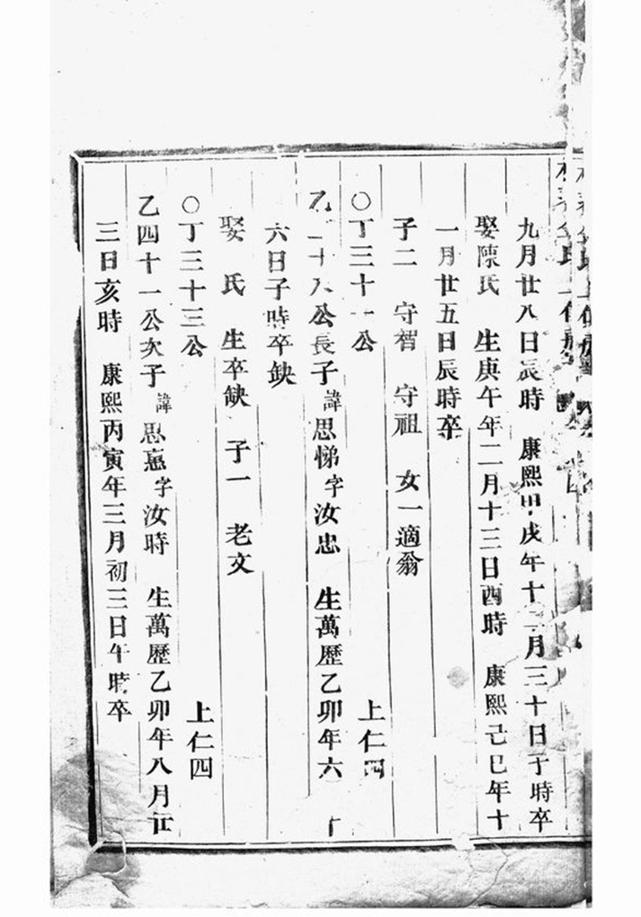 九月廿八日辰時 康熙甲戌年十二月三十日子時卒
娶陳氏 生庚午年二月十三日酉時 康熙己巳年十
一月廿五日辰時卒
子二 守智 守祖 女一適翁
○丁三十一公 上仁四
乙三十八公長子諱思悌字汝忠 生萬歷乙卯年六 十
六日子時卒缺
娶 氏 生卒缺 子一 老文
○丁三十三公 上仁四
乙四十一公次子諱思 字汝時 生萬歷乙卯年八月廿
三日亥時 康熙丙寅年三月初三日午時卒